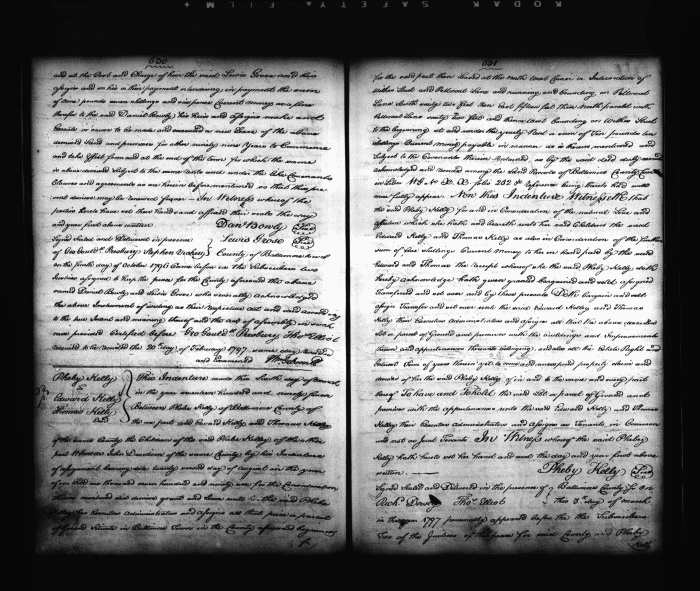 KODAK SAFETY FILM
650
and at the Cost and Charge of him the said Lewis Grose and his
assigns and on his or their payment or tendering in payment the sum
of nine pounds seven shillings and six pence Current money as a fine
therefor to the said Daniel Bowly his Heirs and Assigns make and
Execute or cause to be made and executed a new Lease of the above
demised Land and premises for other ninety nine Years to Commence
and take effect from and at the end of the term for which the same
is above demised Subject to the same rents and under the like Covenants
Clauses and agreements as are herein before mentioned so that the
said may be renewed forever — In Witness whereof the
parties hereto have set their hands and affixed their seals the day
and year first above written
Dan Bowly Seal
Lewis Grose Seal
Signed Sealed and Delivered in presence
of Geo Gouldsh Presbury Stephen } County of Baltimore to wit
On the day of October 1796 Came before us the Subscribers two
Justices assigned to keep the peace for the County aforesaid the above
named Daniel Bowly and Lewis Grose who severally acknowledged
the above Instrument of writing as their respective act and deed according
to the true Intent and meaning thereof and the act of assembly in such
case provided Certified before Geo Gouldsh Presbury Thos Elliot
received to be recorded the 20th day of February 1797 same day recorded
and Examined
Pheby Kelly
to
Edward Kelly
Thomas Kelly
This Indenture made this day of March
in the year seventeen hundred and ninety seven
Between Pheby Kelly of Baltimore County of
the one part and Edward Kelly and Thomas Kelly
of the same County the Children of the said Pheby Kelly of the other
part Whereas John Davidson of the same County by his Indenture
of assignment bearing date twenty second day of august in the year
of our Lord one thousand seven hundred and ninety one for the Consideration
therein recited did demise grant and lease unto the said Pheby
Kelly her Executors Administrators and assigns all that piece or parcel
of Ground Situate in Baltimore Town in the County aforesaid beginning
for
651
for the said part then Leased at the north west Corner or Intersection of
Street and Lane and running and bounding on
Lane South sixty two feet then East fifteen feet then North parallel with
Lane sixty two feet and thence West bounding on Street
to the beginning at and under the yearly Rent or sum of five pounds ten
shillings Current Money payable in manner as is therein mentioned and
Subject to the Covenants therein contained, as by the said deed duly
acknowledged and recorded among the Land Records of Baltimore County Court
in Liber folio 202 reference being thereto had will
more fully appear. Now this Indenture Witnesseth that
the said Pheby Kelly for and in Consideration of the natural Love and
affection which she hath and beareth unto her said Children the said
Edward Kelly and Thomas Kelly as also in Consideration of the further
sum of five shillings Current Money to her in hand paid by the said
Edward and Thomas the receipt whereof she the said Pheby Kelly doth
hereby acknowledge hath given granted bargained and sold assigned
Transferred and set over and by these presents Doth bargain and sell
assign Transfer and set over unto the said Edward Kelly and Thomas
Kelly their Executors Administrators and assigns all that the above described
lot or parcel of Ground and premises with the buildings and Improvements
thereon and appurtenances thereunto belonging, and also all the Estate Right and
Interest Term of years therein yet to come and unexpired property claim and
demand of her the said Pheby Kelly of in and to the same and every part
thereof To have and To hold the said lot or parcel of Ground and
premises with the appurtenances unto the said Edward Kelly and Thomas
Kelly their Executors Administrators and assigns as Tenants in Common
and not as Joint Tenants. In Witness whereof the said Pheby
Kelly hath hereto set her hand and seal the day and year first above
written —
Pheby Kelly Seal
Signed Sealed and Delivered in the presence of } Baltimore County Sc On
Richd Thos Elliot } this 3d day of March
in the year 1797 personally appeared before the Subscribers
Two of the Justices of the peace for said County and Pheby
Kelly